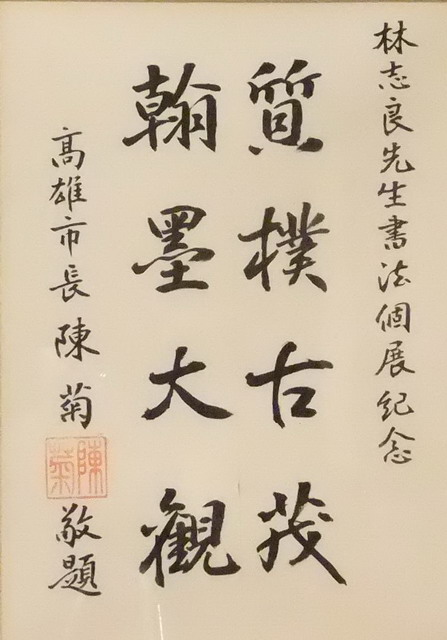 林志良先生書法個展紀念
質樸古茂
翰墨大觀
高雄市長陳菊
陳菊
敬題